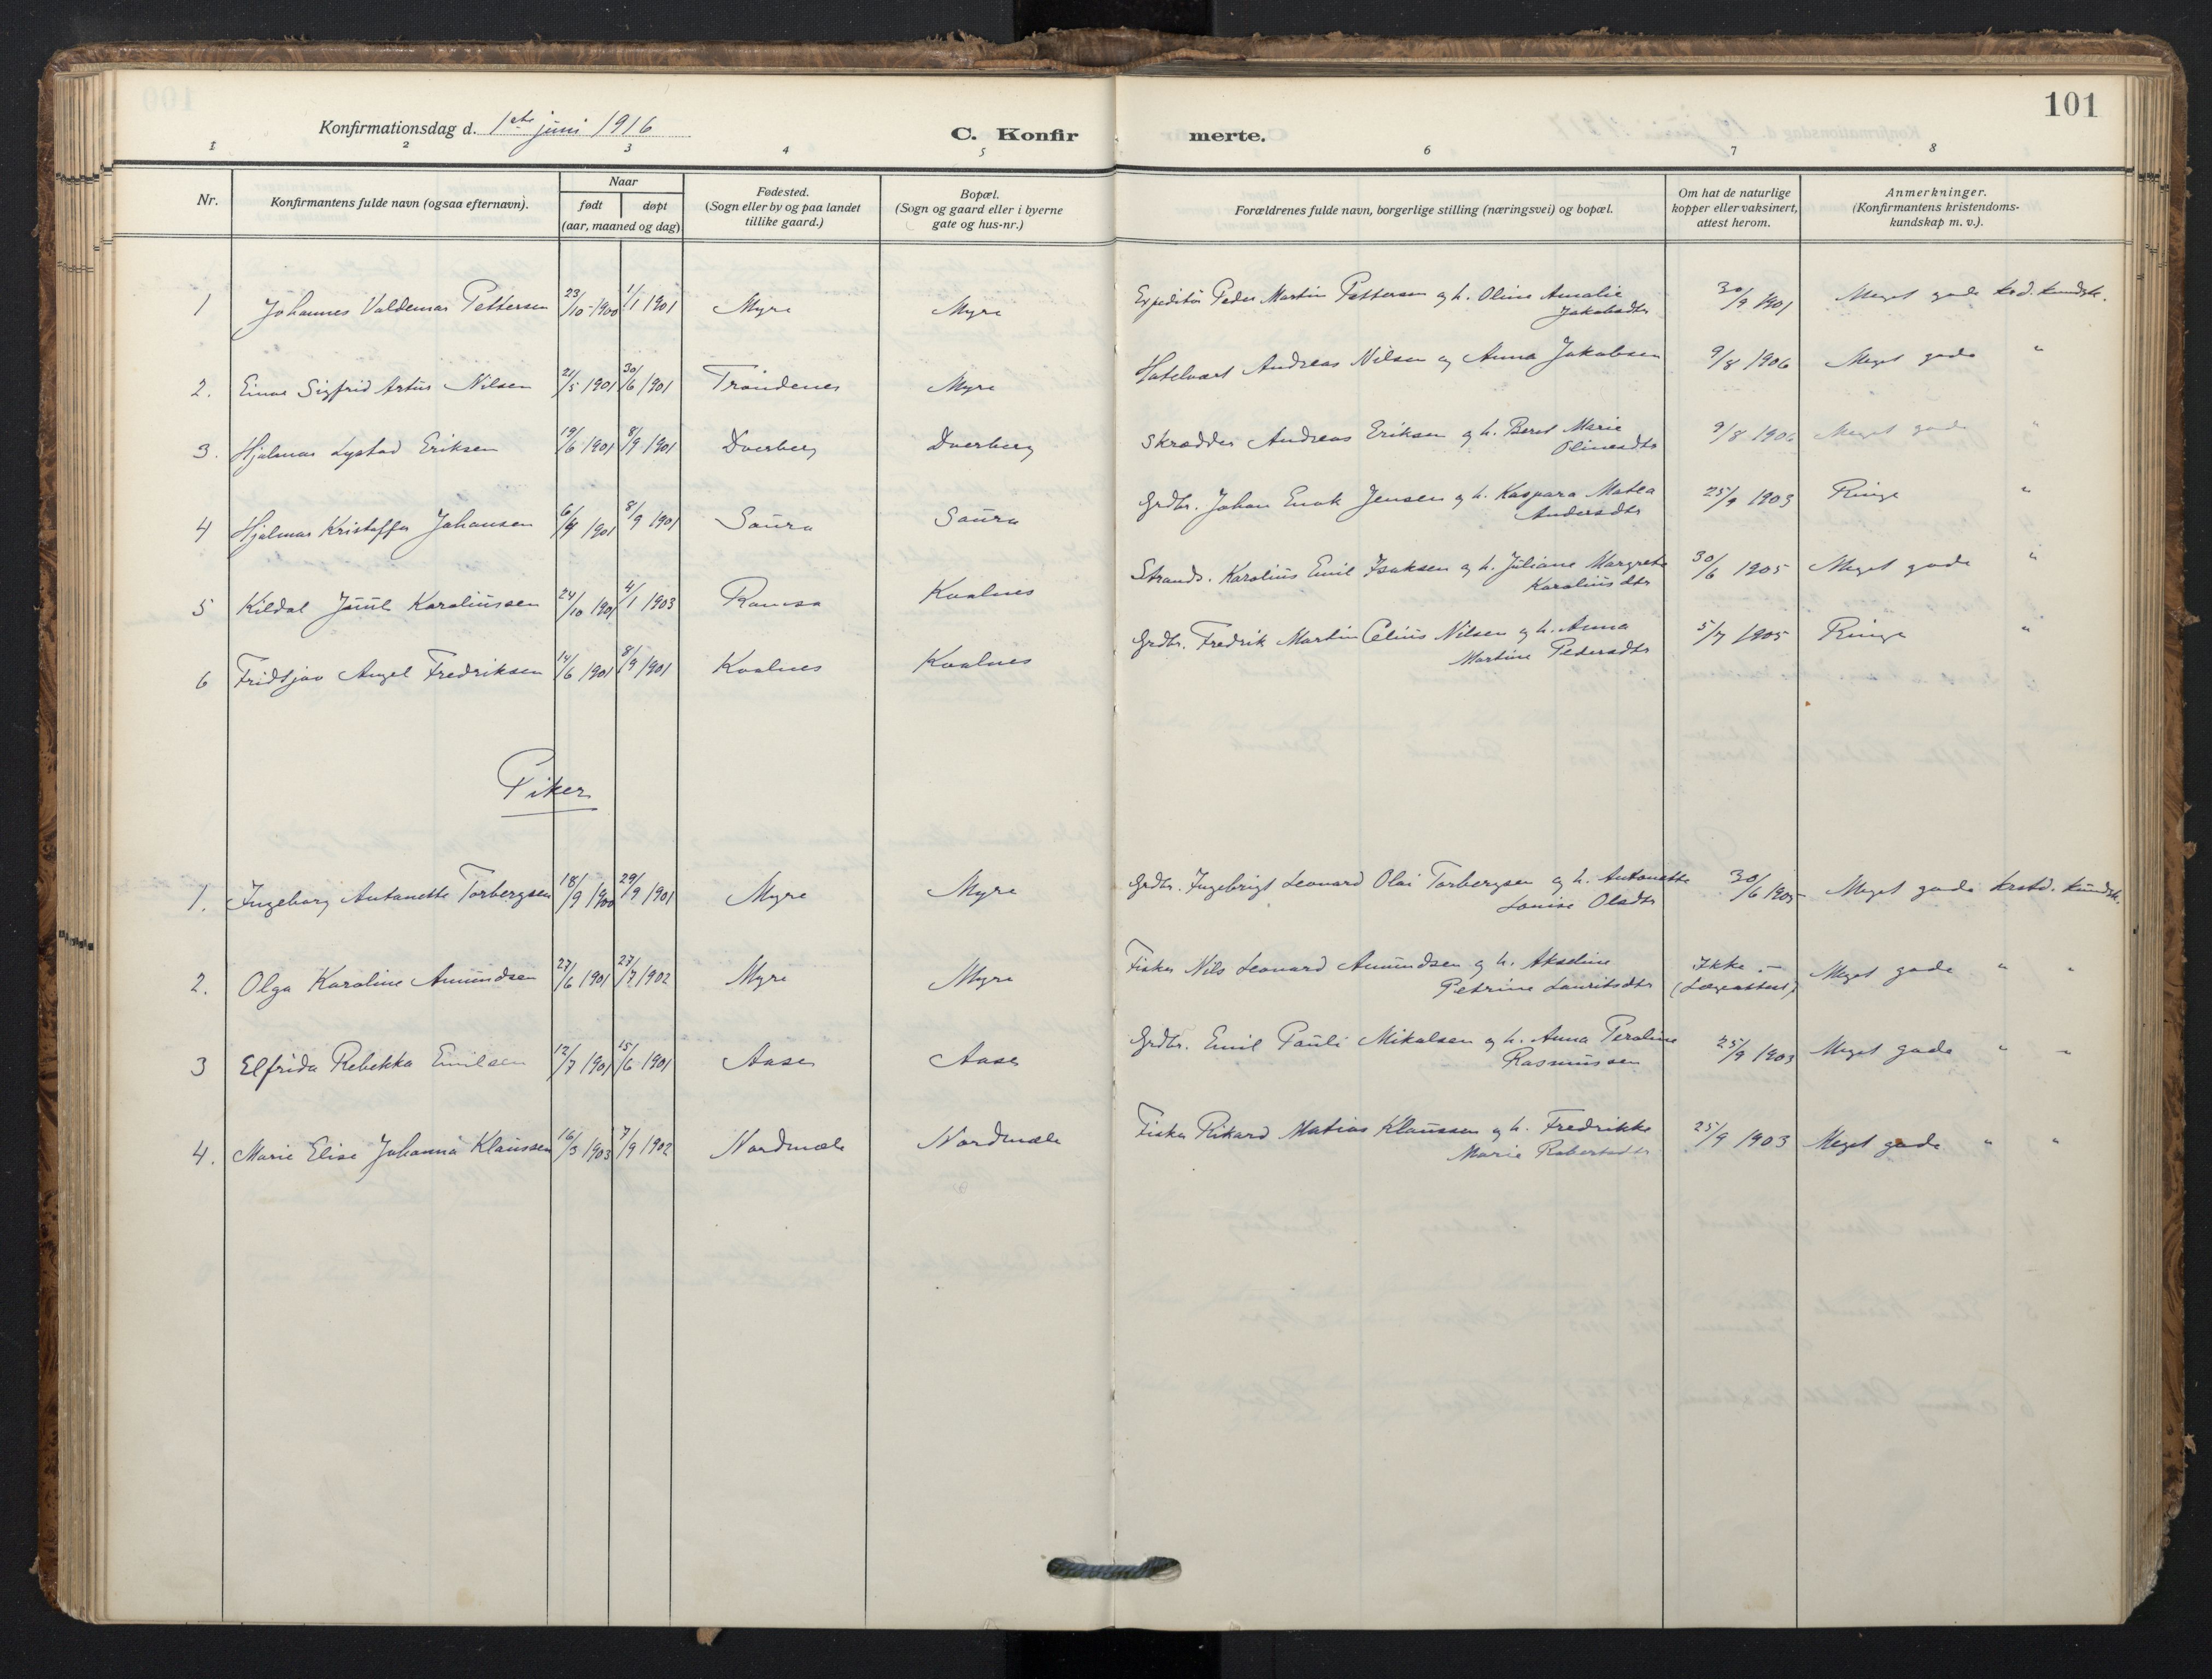 101
Konfirmationsdag d. 1ste juni 1916
C. Konfirmerte.
1 2 3 4 5 6 7 8
Nr.
Konfirmantens fulde navn (ogsaa efternavn).
Naar
født døpt
(aar, maaned og dag)
Fødested.
(Sogn eller by og paa landet
tillike gaard.)
Bopæl.
(Sogn og gaard eller i byerne
gate og hus-nr.)
Forældrenes fulde navn, borgerlige stilling (næringsvei) og bopæl.
Om hat de naturlige
kopper eller vaksinert,
attest herom.
Anmerkninger.
(Konfirmantens kristendoms-
kundskap m. v.).
1 Johannes Valdemar Pettersen 23/10 1900 1/1 1901 Myre Myre Expeditør Peder Martin Pettersen og h. Oline Amalie 30/9 1901 Meget gode krd. kundsk.
Jakobsdtr
2. Einar Sigfrid Artur Nilsen 21/5 1901 30/6 1901 Trondenes Myre Hotelvært Andreas Nilsen og Anna Jakobsen 9/8 1906 Meget gode "
3. Hjalmar Lystad Eriksen 19/6 1901 8/9 1901 Dverberg Dverberg Skrædder Andreas Eriksen og h. Beret Marie 9/8 1906 Meget gode "
Olinesdtr
4 Hjalmar Kristoffer Johansen 6/8 1901 8/9 1901 Saura Saura Grdbr. Johan Enok Jensen og h. Kaspara Matea 25/9 1903 Ringe "
Andersdtr
5 Kildal Juul Karoliussen 24/10 1901 4/1 1903 Ramsa Kvalnes Strands. Karolius Emil Isaksen og h. Juliane Margrete 30/6 1905 Meget gode "
Karoliusdtr
6 Fridtjov Angel Fredriksen 14/6 1901 8/9 1901 Kvalnes Kvalnes Grdbr. Fredrik Martin Celius Nilsen og h. Anna 5/7 1905 Ringe "
Martine Pedersdtr
Piker
1. Ingeborg Antonette Torbergsen 18/9 1900 29/9 1901 Myre Myre Grdbr. Ingebrigt Leonard Olai Torbergsen og h. Antonette 30/6 1905 Meget gode krstd. kundsk.
Louise Olsdtr
2. Olga Karoline Amundsen 27/6 1901 27/7 1902 Myre Myre Fisker Nils Leonard Amundsen og h. Akseline Ikke – Meget gode " "
Petrine Lauritsdtr (Lægeattest)
3 Elfrida Rebekka Emilsen 12/7 1901 15/6 1901 Aase Aase Grdbr. Emil Pauli Mikalsen og h. Anna Peroline 25/9 1903 Meget gode " "
Rasmussen
4. Marie Elise Johanna Klaussen 16/3 1903 7/9 1902 Nordmæle Nordmæle Fisker Rikard Matias Klaussen og h. Fredrikke 25/9 1903 Meget gode " "
Marie Robertsdtr